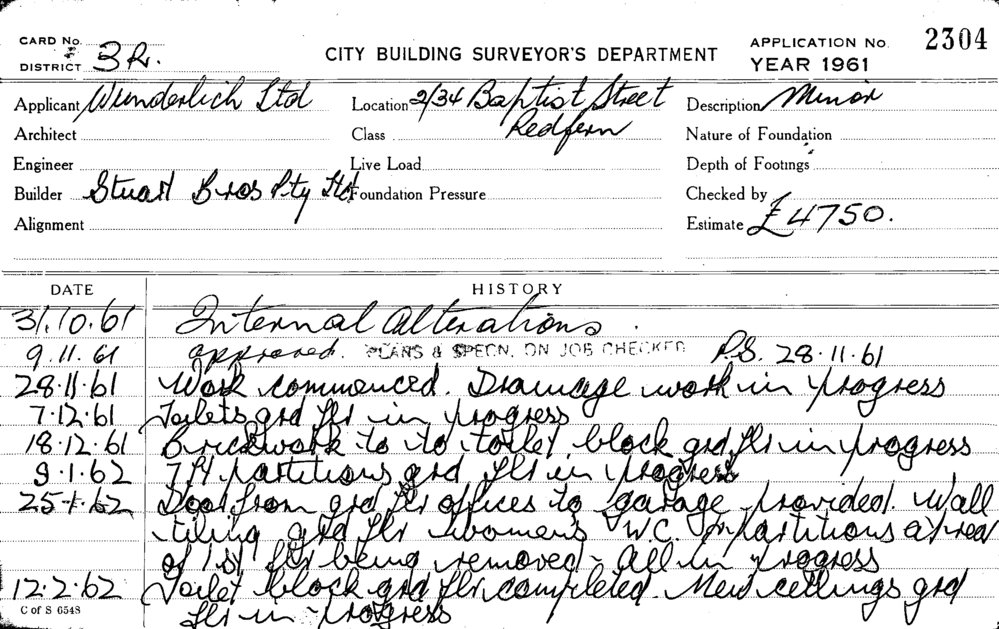 CARD No.
DISTRICT 3R.
CITY BUILDING SURVEYOR'S DEPARTMENT
APPLICATION No. 2304
YEAR 1961
Applicant Wunderlich Ltd Location 2/34 Baptist Street Description Minor
Architect Class Redfern Nature of Foundation
Engineer Live Load Depth of Footings
Builder Stuart Bros Pty Ltd Foundation Pressure Checked by
Alignment Estimate £4750.
DATE HISTORY
31.10.61 Internal Alterations.
9.11.61 approved. PLANS & SPECN. ON JOB CHECKED R.S. 28.11.61
28.11.61 Work commenced. Drainage work in progress
7.12.61 Toilets grd flr in progress
18.12.61 Brickwork to to toilet block grd flr in progress
9.1.62 7ft partitions grd flr in progress
25.1.62 Door from grd flr offices to garage provided. Wall
tiling grd flr women's W.C. partitions at rear
of 1st flr being removed - All in progress
12.2.62 Toilet block grd flr completed. New ceilings grd
flr in progress
C of S 6548